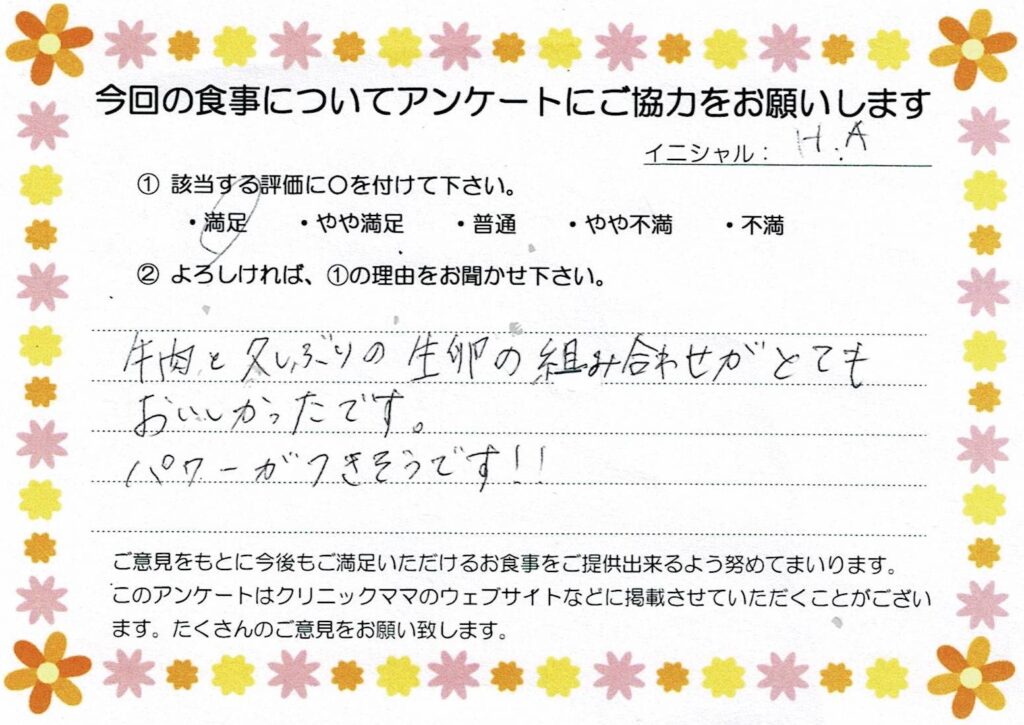 今回の食事についてアンケートにご協力をお願いします
イニシャル： H.A
① 該当する評価に〇を付けて下さい。
・満足 ・やや満足 ・普通 ・やや不満 ・不満
② よろしければ、①の理由をお聞かせ下さい。
牛肉と久しぶりの生卵の組み合わせがとても
おいしかったです。
パワーがつきそうです!!
ご意見をもとに今後もご満足いただけるお食事をご提供出来るよう努めてまいります。
このアンケートはクリニックママのウェブサイトなどに掲載させていただくことがござい
ます。たくさんのご意見をお願い致します。